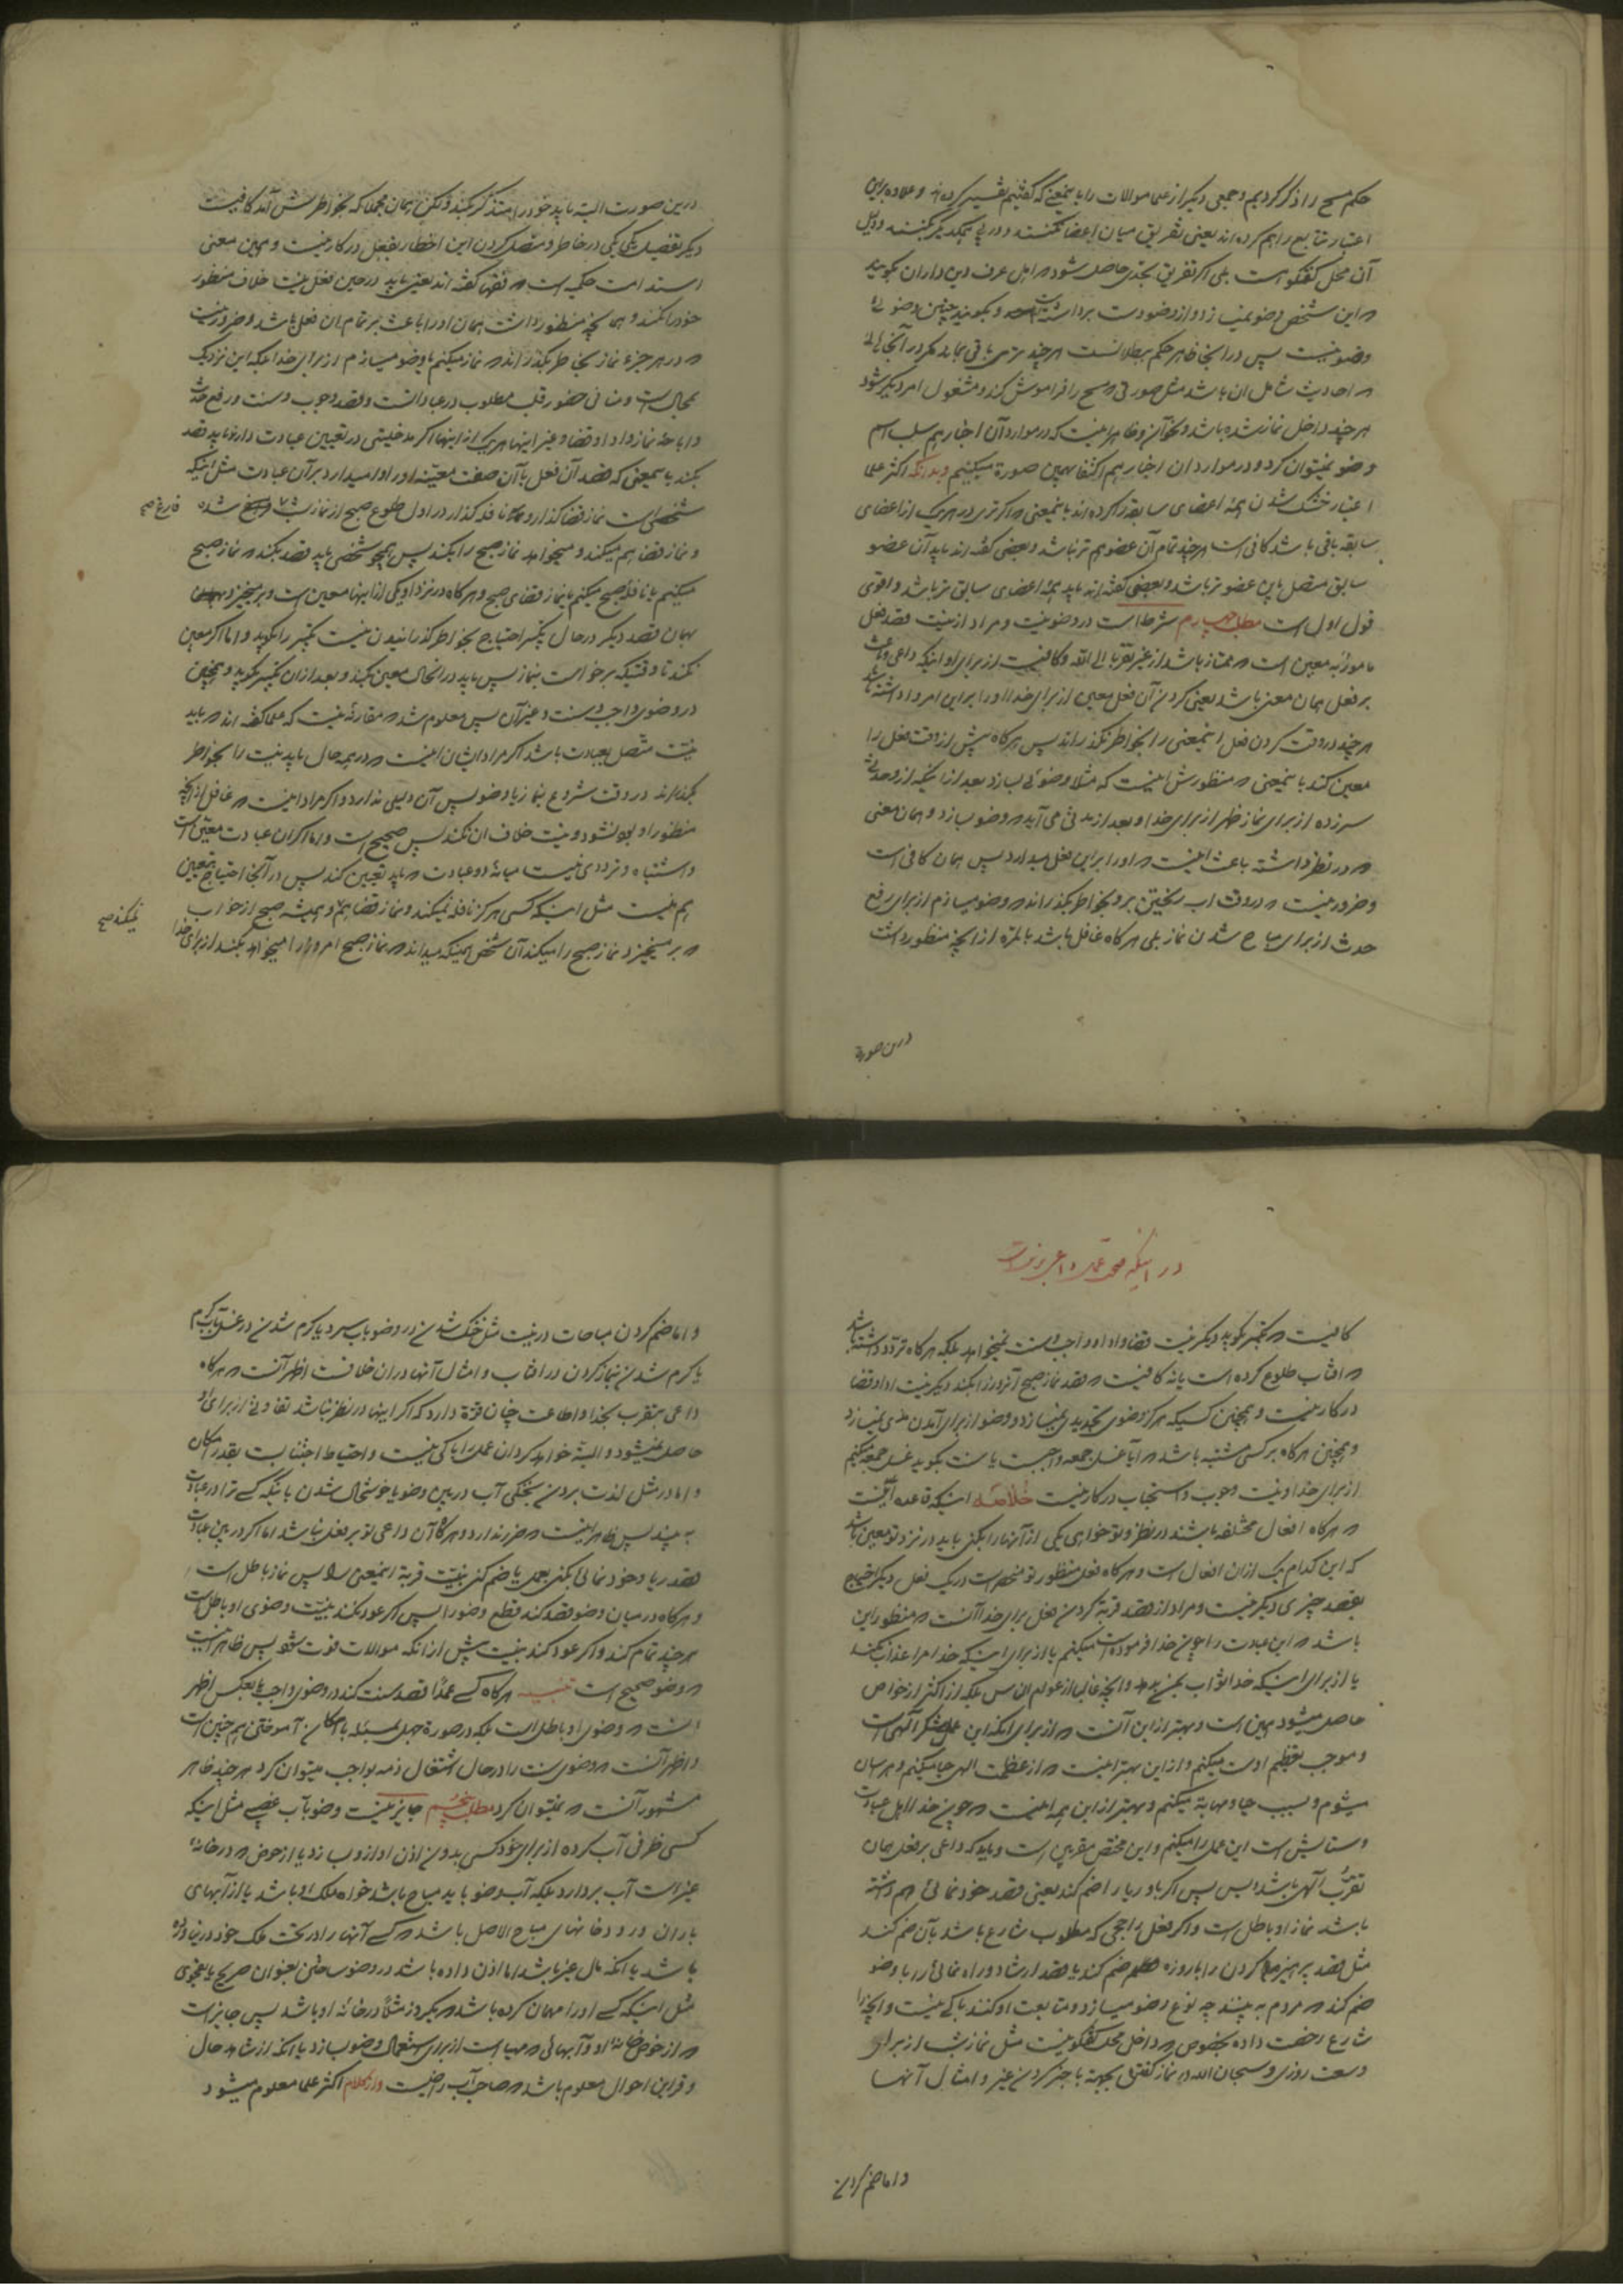 حکم مسح را ذکر کردیم و جمعی دیگر از علما موالات را باینمعنی که گفتیم تفسیر کرده‌اند و علاوه براین
اعتبار تتابع را هم کرده‌اند یعنی تفریق میان اعضا نکنند و در پی یکدیگر بکنند و دلیل
آن محل گفتگو است بلی اگر تفریق بحدی حاصل شود که اهل عرف دین داران بگویند
که این شخص وضو نمیسازد و از وضو دست برداشته است و بگویند چنین وضوئی
وضو نیست پس در اینجا ظاهر حکم ببطلانست هرچند تری باقی بماند مگر در آنجائی
که احادیث شامل آن باشد مثل صورتی که مسح را فراموش کند و مشغول امر دیگر شود
هر چند داخل نماز شده باشد و نحو آن و ظاهر اینست که در موارد آن اخبار هم سلب اسم
وضو نمیتوان کرد و در موارد ان اخبار هم اکتفا بهمین صورة میکنیم و بدانکه اکثر علما
اعتبار خشک شدن همهٔ اعضای سابقه را کرده‌اند باینمعنی که اگر تری در هر یک از اعضای
سابقه باقی باشد کافی است هرچند تمام آن عضو هم تر نباشد و بعضی گفته‌اند باید آن عضو
سابق متصل باین عضو تر باشد و بعضی گفته‌اند باید همهٔ اعضای سابق تر باشد و اقوی
قول اول است مطلب چهارم شرط است در وضو نیت و مراد از نیت قصد فعل
مامور به معین است که ممتاز باشد از غیر تقربا الی الله و کافیست از برای او اینکه داعی و باعث
بر فعل همان معنی باشد یعنی کردن آن فعل معین از برای خدا او را بر این امر وا داشته باشد
هر چند در وقت کردن فعل اینمعنی را بخواطر نگذراند پس هرگاه پیش از وقت فعل را
معین کند باینمعنی که منظورش اینست که مثلا وضوئی بسازد بعد از اینکه از او حدثی
سرزده از برای نماز ظهر از برای خدا و بعد از مدتی می آید که وضو بسازد و همان معنی
که در نظر داشته باعث اینست که او را بر این فعل میدارد پس همان کافی است
و ضرور نیست که در وقت اب ریختن برو بخواطر بگذراند که وضو میسازم از برای رفع
حدث از برای مباح شدن نماز بلی هرگاه غافل باشد بالمره از آنچه منظور داشت
درین صورة
درین صورت البته باید خود را متذکر بکند ولکن همان مجملا که بخواطرش آمد کافیست
دیگر تفصیل یکی یکی در خاطر و متصل کردن این اخطار بفعل در کار نیست و همین معنی
استدامت حکمیه است که فقها گفته اند یعنی باید در حین فعل نیت خلاف منظور
خود را نکند و همانچه منظور داشت همان او را باعث بر تمام ان فعل باشد و ضرور نیست
که در هر جزء نماز بخاطر بگذراند که نماز میکنم یا وضو میسازم از برای خدا بلکه این نزدیک
بمحال است و منافی حضور قلب مطلوب در عباداتست و قصد وجوب و سنت و رفع حدث
و اباحهٔ نماز و ادا و قضا و غیر اینها هر یک از اینها اگر مدخلیتی در تعیین عبادت دارد باید قصد
بکند باینمعنی که قصد آن فعل با آن صفت معینه او را وا میدارد بر آن عبادت مثل اینکه
شخصی است نماز قضا گذار و نافله گذار در اول طلوع صبح از نماز شب شده فارغ صح
و نماز قضا هم میکند و میخواهد نماز صبح را بکند پس همچو شخصی باید قصد بکند که نماز صبح
میکنم یا نافلهٔ صبح میکنم یا نماز قضای صبح و هرگاه در نزد او یکی از اینها معین است و برمیخیزد
بهمان قصد دیگر در حال تکبیر احتیاج بخواطر گذرانیدن نیست تکبیر را بگوید و اما اگر معین
نکند تا وقتیکه برخواست بنماز پس باید در انحال معین بکند و بعد از ان تکبیر بگوید و همچنین
در وضوی واجب و سنت و غیر آن پس معلوم شد که مقارنهٔ نیت که علما گفته‌اند که باید
نیت متصل بعبادت باشد اگر مراد ایشان اینست که در همه حال باید نیت را بخواطر
بگذراند در وقت شروع بنماز یا وضو پس آن دلیلی ندارد و اگر مراد اینست که غافل از آنچه
منظور او بود نشود و نیت خلاف ان نکند پس صحیح است و اما اگر ان عبادت معین است
و اشتباه و ترددی نیست میانهٔ دو عبادت که باید تعیین کند پس در آنجا احتیاج بتعیین
هم نیست مثل اینکه کسی هرگز نافله نمیکند و نماز قضا هم و همیشه صبح از خواب نمیکند صح
که برمیخیزد نماز صبح را میکند آن شخص همینکه میداند که نماز صبح امروز را میخواهد بکند از برای خدا
در اینکه داعی بر نیت
کافیست که تکبیر بگوید دیگر نیت قضا و ادا و واجب و سنت نمیخواهد بلکه هرگاه تردد داشته باشد
که افتاب طلوع کرده است یا نه کافیست که قصد نماز صبح آنروز را بکند دیگر نیت ادا و قضا
در کار نیست و همچنین کسیکه هرگز وضوی تجدیدی نمیسازد و وضو از برای آمدن مذی نمیسازد
و همچنین هرگاه بر کسی مشتبه باشد که آیا غسل جمعه واجبست یا سنت بگوید غسل جمعه میکنم
از برای خدا و نیت وجوب و استحباب در کار نیست خلاصه اینکه قاعده اینست
که هرگاه افعال مختلفه باشند در نظر و تو خواهی یکی از آنها را بکنی باید در نزد تو معین باشد
که این کدام یک از ان افعال است و هرگاه فعل منظور تو منحصر است در یک فعل دیگر احتیاج
بقصد چیزی دیگر نیست و مراد از قصد قربة کردن فعل برای خدا آنست که منظور این
باشد که این عبادت را چون خدا فرموده است میکنم یا از برای اینکه خدا مرا عذاب نکند
یا از برای اینکه خدا ثواب بمن بدهد و آنچه غالبا از عوام الناس بلکه از اکثر از خواص
حاصل میشود همین است و بهتر از این آنست که از برای انکه این عمل شکر آلهی است
و موجب تعظیم اوست میکنم و از این بهتر اینست که از عظمت الهی حیا میکنم و هرسان
میشوم و بسبب حیا و مهابة میکنم و بهتر از این همه اینست که چون خدا اهل عبادت
و ستایش است این عمل را میکنم و این مختص مقربین است و باید که داعی بر فعل همان
تقرب آلهی باشد و بس پس اگر با او ریا را ضم کند یعنی قصد خودنمائی هم داشته
باشد نماز او باطل است و اگر فعل راجحی که مطلوب شارع باشد بآن ضم کند
مثل قصد پرهیز کردن را با روزه ضم کند یا قصد ارشاد و راه نمائی را با وضو
ضم کند که مردم به بینند چه نوع وضو میسازد و متابعت او کنند باکی نیست و آنچه را
شارع رخصت داده بخصوص که داخل محل گفتگو نیست مثل نماز شب از برای
وسعت روزی و سبحان الله در نماز گفتن بجهة با خبر کردن غیر و امثال آنها
و اما ضم کردن
و اما ضم کردن مباحات در نیت مثل خنک شدن در وضو باب سرد یا گرم شدن در غسل باب گرم
یا گرم شدن بنماز کردن در افتاب و امثال آنها در ان خلافست اظهر آنست که هرگاه
داعی تقرب بخدا و اطاعت چنان قوة دارد که اگر اینها در نظر نباشد تفاوتی از برای او
حاصل نمیشود و البته خواهد کرد ان عمل را باکی نیست و احتیاط اجتنابست بقدر امکان
و اما در مثل لذت بردن بخنکی آب در بین وضو یا خوشحال شدن باینکه کسی ترا در عبادت
به بیند پس ظاهر اینست که ضرر ندارد و هرگاه آن داعی تو بر فعل نباشد اما اگر در بین عبادت
قصد ریا و خودنمائی بکنی بعمل یا ضم کنی بنیت قربة اینمعنی را پس نماز باطل است
و هرگاه در میان وضو قصد کند قطع وضو را پس اگر عود نکند بنیت وضوی او باطل است
هر چند تمام کند و اگر عود کند بنیت پیش از انکه موالات فوت شود پس ظاهر اینست
که وضو صحیح است تنبیه هرگاه کسی عمدا قصد سنت کند در وضوی واجب یا بعکس اظهر
انست که وضوی او باطل است بلکه در صورة جهل بمسئله با امکان آموختن هم چنین است
و اظهر آنست که وضوی سنت را در حال اشتغال ذمه بواجب میتوان کرد هر چند ظاهر
مشهور آنست که نمیتوان کرد مطلب پنجم جایز نیست وضو بآب غصبی مثل اینکه
کسی ظرفی آب کرده از برای خود کسی بدون اذن او از او بسازد یا از حوض که در خانهٔ
غیر است آب بردارد بلکه آب وضو باید مباح باشد خواه ملک او باشد یا از آبهای
باران و رودخانهای مباح الاصل باشد که کسی آنها را در تحت ملک خود در نیاورده
باشد یا انکه مال غیر باشد اما اذن داده باشد در وضو ساختن بعنوان صریح یا بفحوی
مثل اینکه کسی او را مهمان کرده باشد که یکروز مثلا در خانهٔ او باشد پس جایز است
که از حوض خانهٔ او و آبهائی که مهیا است از برای استعمال وضو بسازد یا انکه از شاهد حال
و قراین احوال معلوم باشد که صاحب آب راضیست و از کلام اکثر علما معلوم میشود